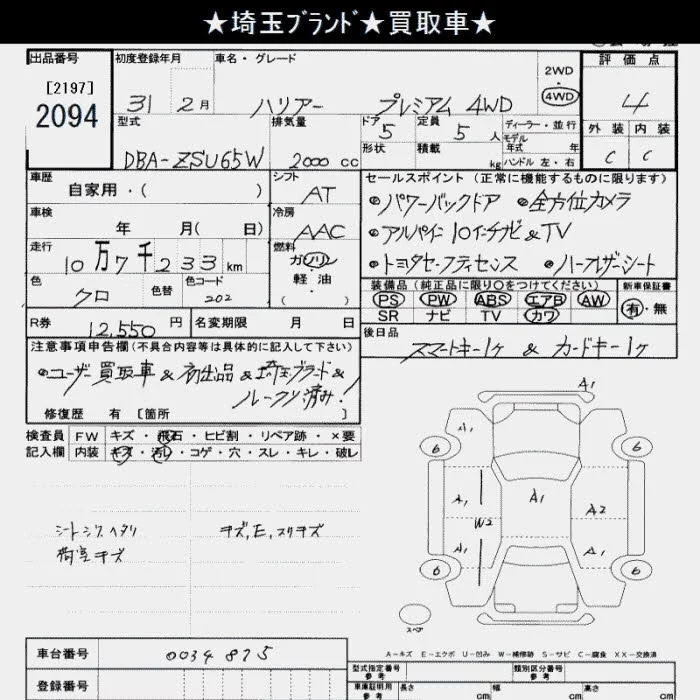 ★埼玉ﾌﾞﾗﾝﾄﾞ★買取車★
出品番号 初度登録年月 車名・グレード 評価点
[2197] 2WD
2094 31 2月 ハリアー プレミアム 4WD 4WD 4
型式 排気量 ドア 5 定員 5人 ディーラー・並行 外装 内装
モデル年式 年
DBA-ZSU65W 2000cc 形状 積載 kg ハンドル 左・右 C C
車歴 シフト セールスポイント (正常に機能するものに限ります)
自家用・( ) AT •パワーバックドア •全方位カメラ
車検 冷房
年 月( 日) AAC •アルパイン10インチナビ&TV
走行 燃料
10万7千233km ガソリン •トヨタセーフティセンス •ハーフレザーシート
色 色替 色コード 軽油 装備品 (純正品に限り○をつけてください) 新車保証書
クロ 202 ・( PS PW ABS エアB AW 有・無
SR ナビ TV カワ
R券 12,550円 名変期限 月 日 後日品
スマートキー1ケ & カードキー1ケ
注意事項申告欄(不具合内容等は具体的に記入して下さい)
•ユーザー買取車&初出品&埼玉ブランド&
ルークリ済み!
修復歴 有 [箇所
検査員 FW キズ・飛石・ヒビ割・リペア跡・×要
記入欄 内装 キズ・汚レ・コゲ・穴・スレ・キレ・破レ
A1
A1
6 6
A1 A1 A2
W2
A1 A1
6 6
シートシワヘタリ キズ,E,スリキズ
荷室キズ
スペア
A-キズ E-エクボ U-凹み W-補修跡 S-サビ C-腐食 XX-交換済
車台番号 0034825
型式指定番号 参考 類別区分番号 参考
登録番号 車庫証明用 参考 長さ cm 幅 cm 高さ cm